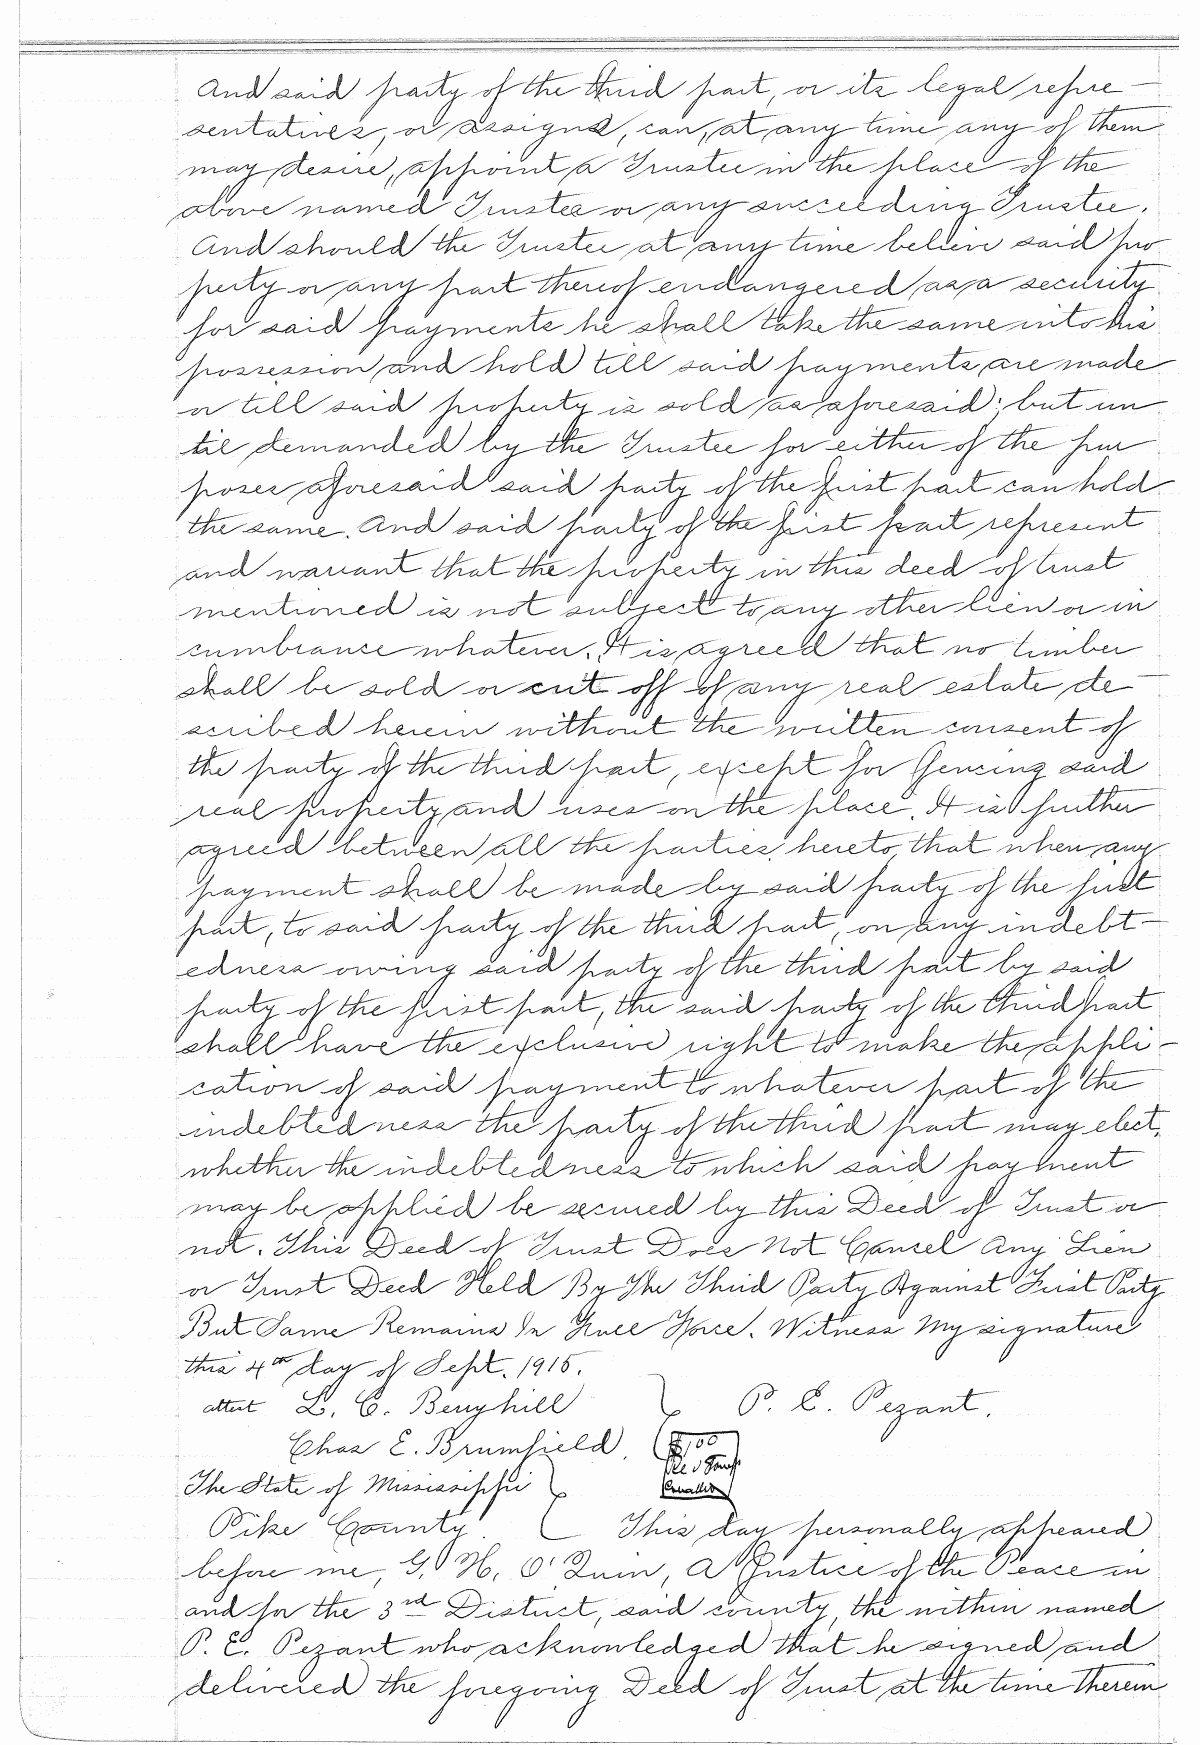 And said party of the third part, or its legal repre-
sentatives, or assigns, can, at any time any of them
may desire, appoint a Trustee in the place of the
above named Trustee or any succeeding Trustee.
And should the Trustee at any time believe said pro
perty or any part thereof endangered as a security
for said payments he shall take the same into his
possession and hold till said payments are made
or till said property is sold as aforesaid; but un
til demanded by the Trustee for either of the pur
poses aforesaid said party of the first part can hold
the same. And said party of the first part represent
and warrant that the property in this deed of trust
mentioned is not subject to any other lien or in
cumbrance whatever. It is agreed that no timber
shall be sold or cut off of any real estate de-
scribed herein without the written consent of
the party of the third part, except for fencing said
real property and uses on the place. It is further
agreed between all the parties hereto that when any
payment shall be made by said party of the first
part, to said party of the third part, on any indebt-
edness owing said party of the third part by said
party of the first part, the said party of the third part
shall have the exclusive right to make the appli-
cation of said payment to whatever part of the
indebtedness the party of the third part may elect,
whether the indebtedness to which said payment
may be applied be secured by this Deed of Trust or
not. This Deed of Trust Does Not Cancel Any Lien
or Trust Deed Held By The Third Party Against First Party
But Same Remains In Full Force. Witness My signature
this 4th day of Sept. 1915.
attest L. C. Berryhill } P. E. Pezant.
Chas E. Brumfield.
The State of Mississippi
Pike County. This day personally appeared
before me, G. H. O'Quin, A Justice of the Peace in
and for the 3rd District, said county, the within named
P. E. Pezant who acknowledged that he signed and
delivered the foregoing Deed of Trust at the time therein